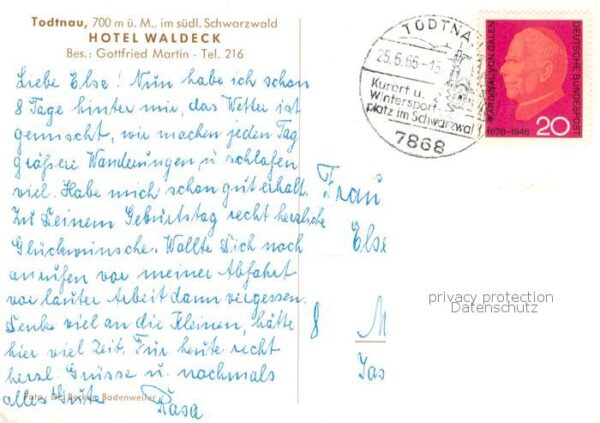 Todtnau, 700 m ü. M., im südl. Schwarzwald
HOTEL WALDECK
Bes.: Gottfried Martin - Tel. 216
Liebe Else! Nun habe ich schon
8 Tage hinter mir, das Wetter ist
gemischt, wir machen jeden Tag
größere Wanderungen u schlafen
viel. Habe mich schon gut erholt.
Zu Deinem Geburtstag recht herzliche
Glückwünsche. Wollte Dich noch
anrufen vor meiner Abfahrt
vor lauter Arbeit dann vergessen.
Denke viel an die Kleinen, hätte
hier viel Zeit. Für heute recht
herzl. Grüsse u. nochmals
alles Gute Rasa.
Foto: Dr. Badenweiler
TODTNA
25.6.66-15
Kurort u.
Wintersport
platz im Schwarzwal
7868
KARDINAL VON GALEN
DEUTSCHE BUNDESPOST
1878-1946
20
Frau
Else
8 M
Jas
privacy protection
Datenschutz